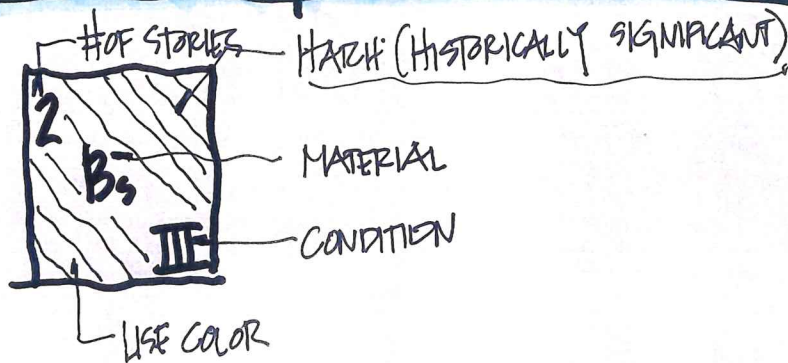 # OF STORIES
HATCH (HISTORICALLY SIGNIFICANT)
2
Bs
MATERIAL
III
CONDITION
USE COLOR